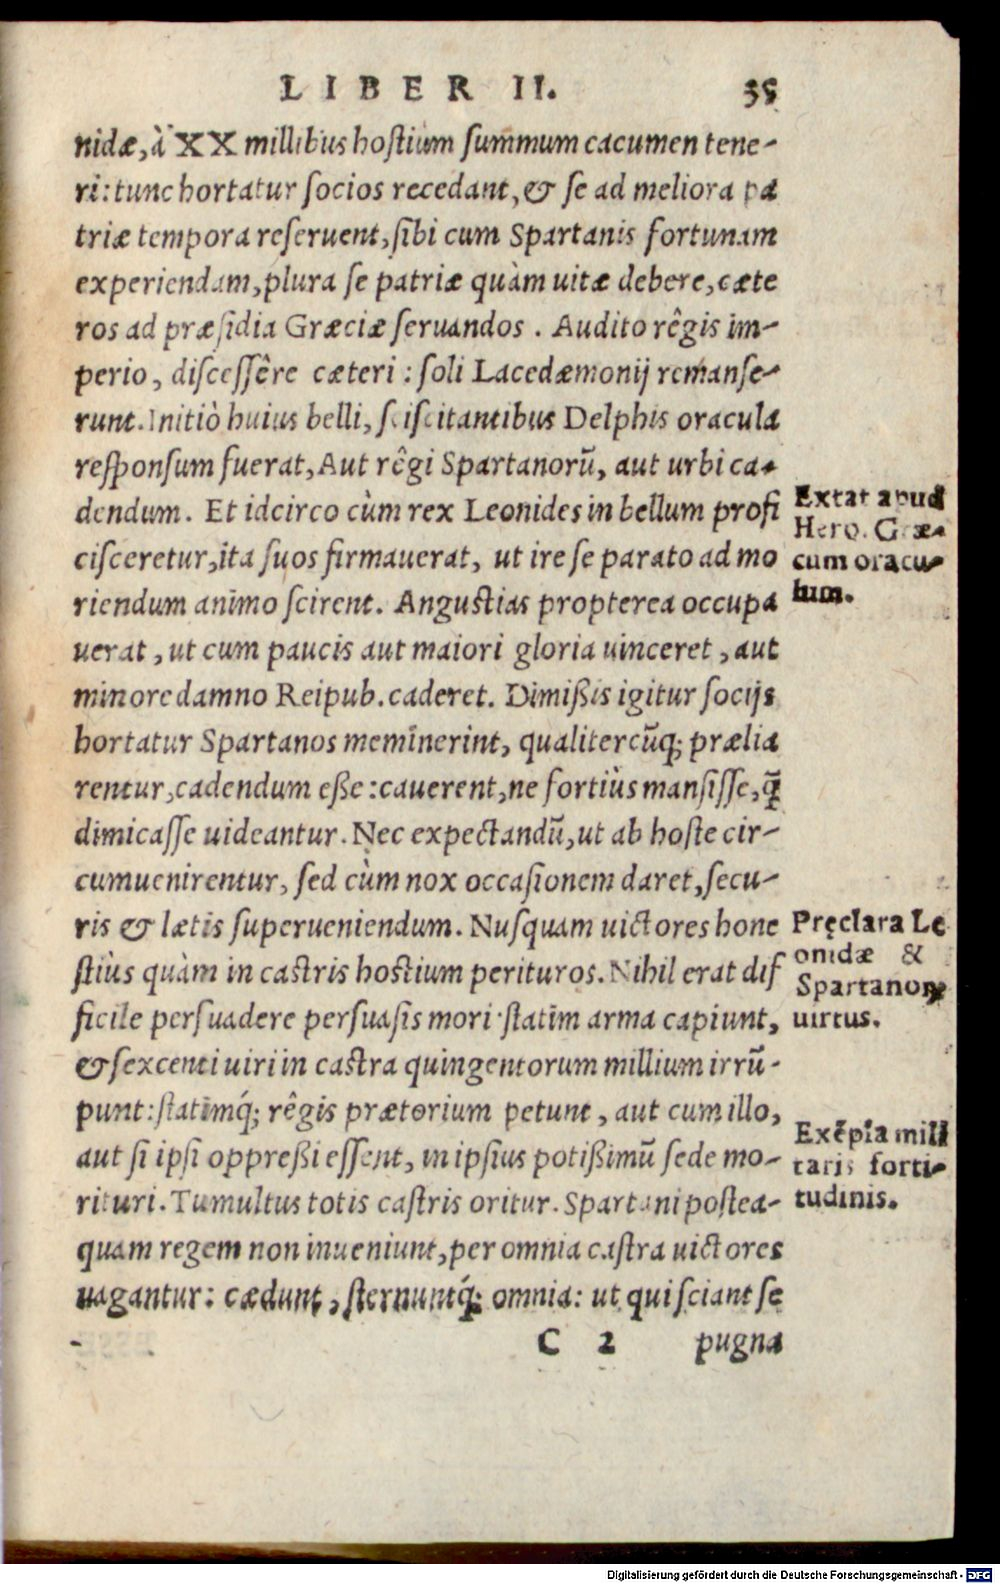 LIBER II. 35
nidæ, à XX millibus hostium summum cacumen tene-
ri: tunc hortatur socios recedant, & se ad meliora pa
triæ tempora reseruent, sibi cum Spartanis fortunam
experiendam, plura se patriæ quàm uitæ debere, cæte
ros ad præsidia Græciæ seruandos. Audito rêgis im-
perio, discessêre cæteri: soli Lacedæmonij remanse-
runt. Initiò huius belli, sciscitantibus Delphis oracula
responsum fuerat, Aut rêgi Spartanorũ, aut urbi ca-
dendum. Et idcirco cùm rex Leonides in bellum profi
cisceretur, ita suos firmauerat, ut ire se parato ad mo
riendum animo scirent. Angustias propterea occupa
uerat, ut cum paucis aut maiori gloria uinceret, aut
minore damno Reipub. caderet. Dimißis igitur socijs
hortatur Spartanos memînerint, qualitercũq; prælia
rentur, cadendum eße: cauerent, ne fortiùs mansisse, q̃
dimicasse uideantur. Nec expectandũ, ut ab hoste cir-
cumuenirentur, sed cùm nox occasionem daret, secu-
ris & lætis superueniendum. Nusquam uictores hone
stiùs quàm in castris hostium perituros. Nihil erat dif
ficile persuadere persuasis mori· statim arma capiunt,
& sexcenti uiri in castra quingentorum millium irrũ-
punt: statimq́; rêgis prætorium petunt, aut cum illo,
aut si ipsi oppreßi essent, in ipsius potißimũ sede mo-
rituri. Tumultus totis castris oritur. Spartani postea-
quam regem non inueniunt, per omnia castra uictores
uagantur: cædunt, sternuntq́; omnia: ut qui sciant se
C 2 pugna
Extat apud
Hero. Græ-
cum oracu-
lum.
Pręclara Le
onidæ &
Spartanoꝝ
uirtus.
Exẽpla mili
taris forti-
tudinis.
Digitalisierung gefördert durch die Deutsche Forschungsgemeinschaft - DFG